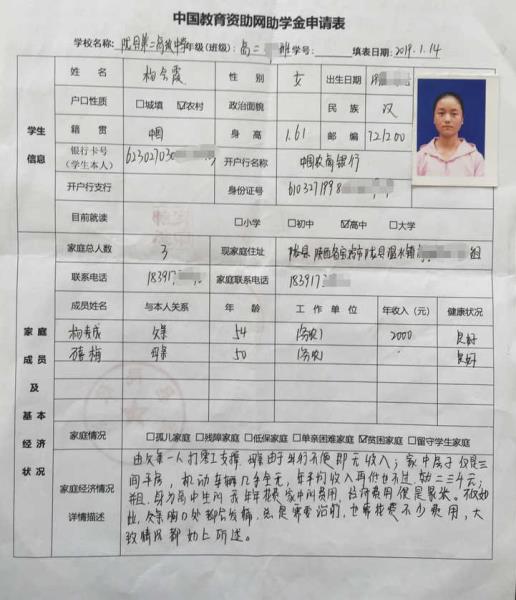 中国教育资助网助学金申请表
学校名称: 陇县第二高级中学 年级(班级): 高二 班 学号: 填表日期: 2019.1.14
学生信息
姓名 杨会霞 性别 女 出生日期
户口性质 □城镇 ☑农村 政治面貌 民族 汉
籍贯 中国 身高 1.61 邮编 721200
银行卡号(学生本人) 623027030 开户行名称 中国农商银行
开户行支行 身份证号 6103271998
目前就读 □小学 □初中 ☑高中 □大学
家庭成员及基本经济状况
家庭总人数 3 现家庭住址 陕西省宝鸡市陇县温水镇 组
联系电话 183917 家庭联系电话 183917
成员姓名 与本人关系 年龄 工作单位 年收入(元) 健康状况
杨 成 父亲 54 务农 2000 良好
梅 母亲 50 务农 良好
家庭情况 □孤儿家庭 □残障家庭 □低保家庭 □单亲困难家庭 ☑贫困家庭 □留守学生家庭
家庭经济情况详情描述
由父亲一人打零工支撑, 母亲由于 不便即无收入; 家中房子仅良三
间平房, 机动车辆几乎全无, 年 收入再 也不过 二三千元;
并且, 身为高中生的我年年花费家中的费用, 经济费用便是累 . 不仅如
此, 父亲胸口处都会发痛, 总是需要治的, 也需花费不少费用, 大
致情况都如上所述。